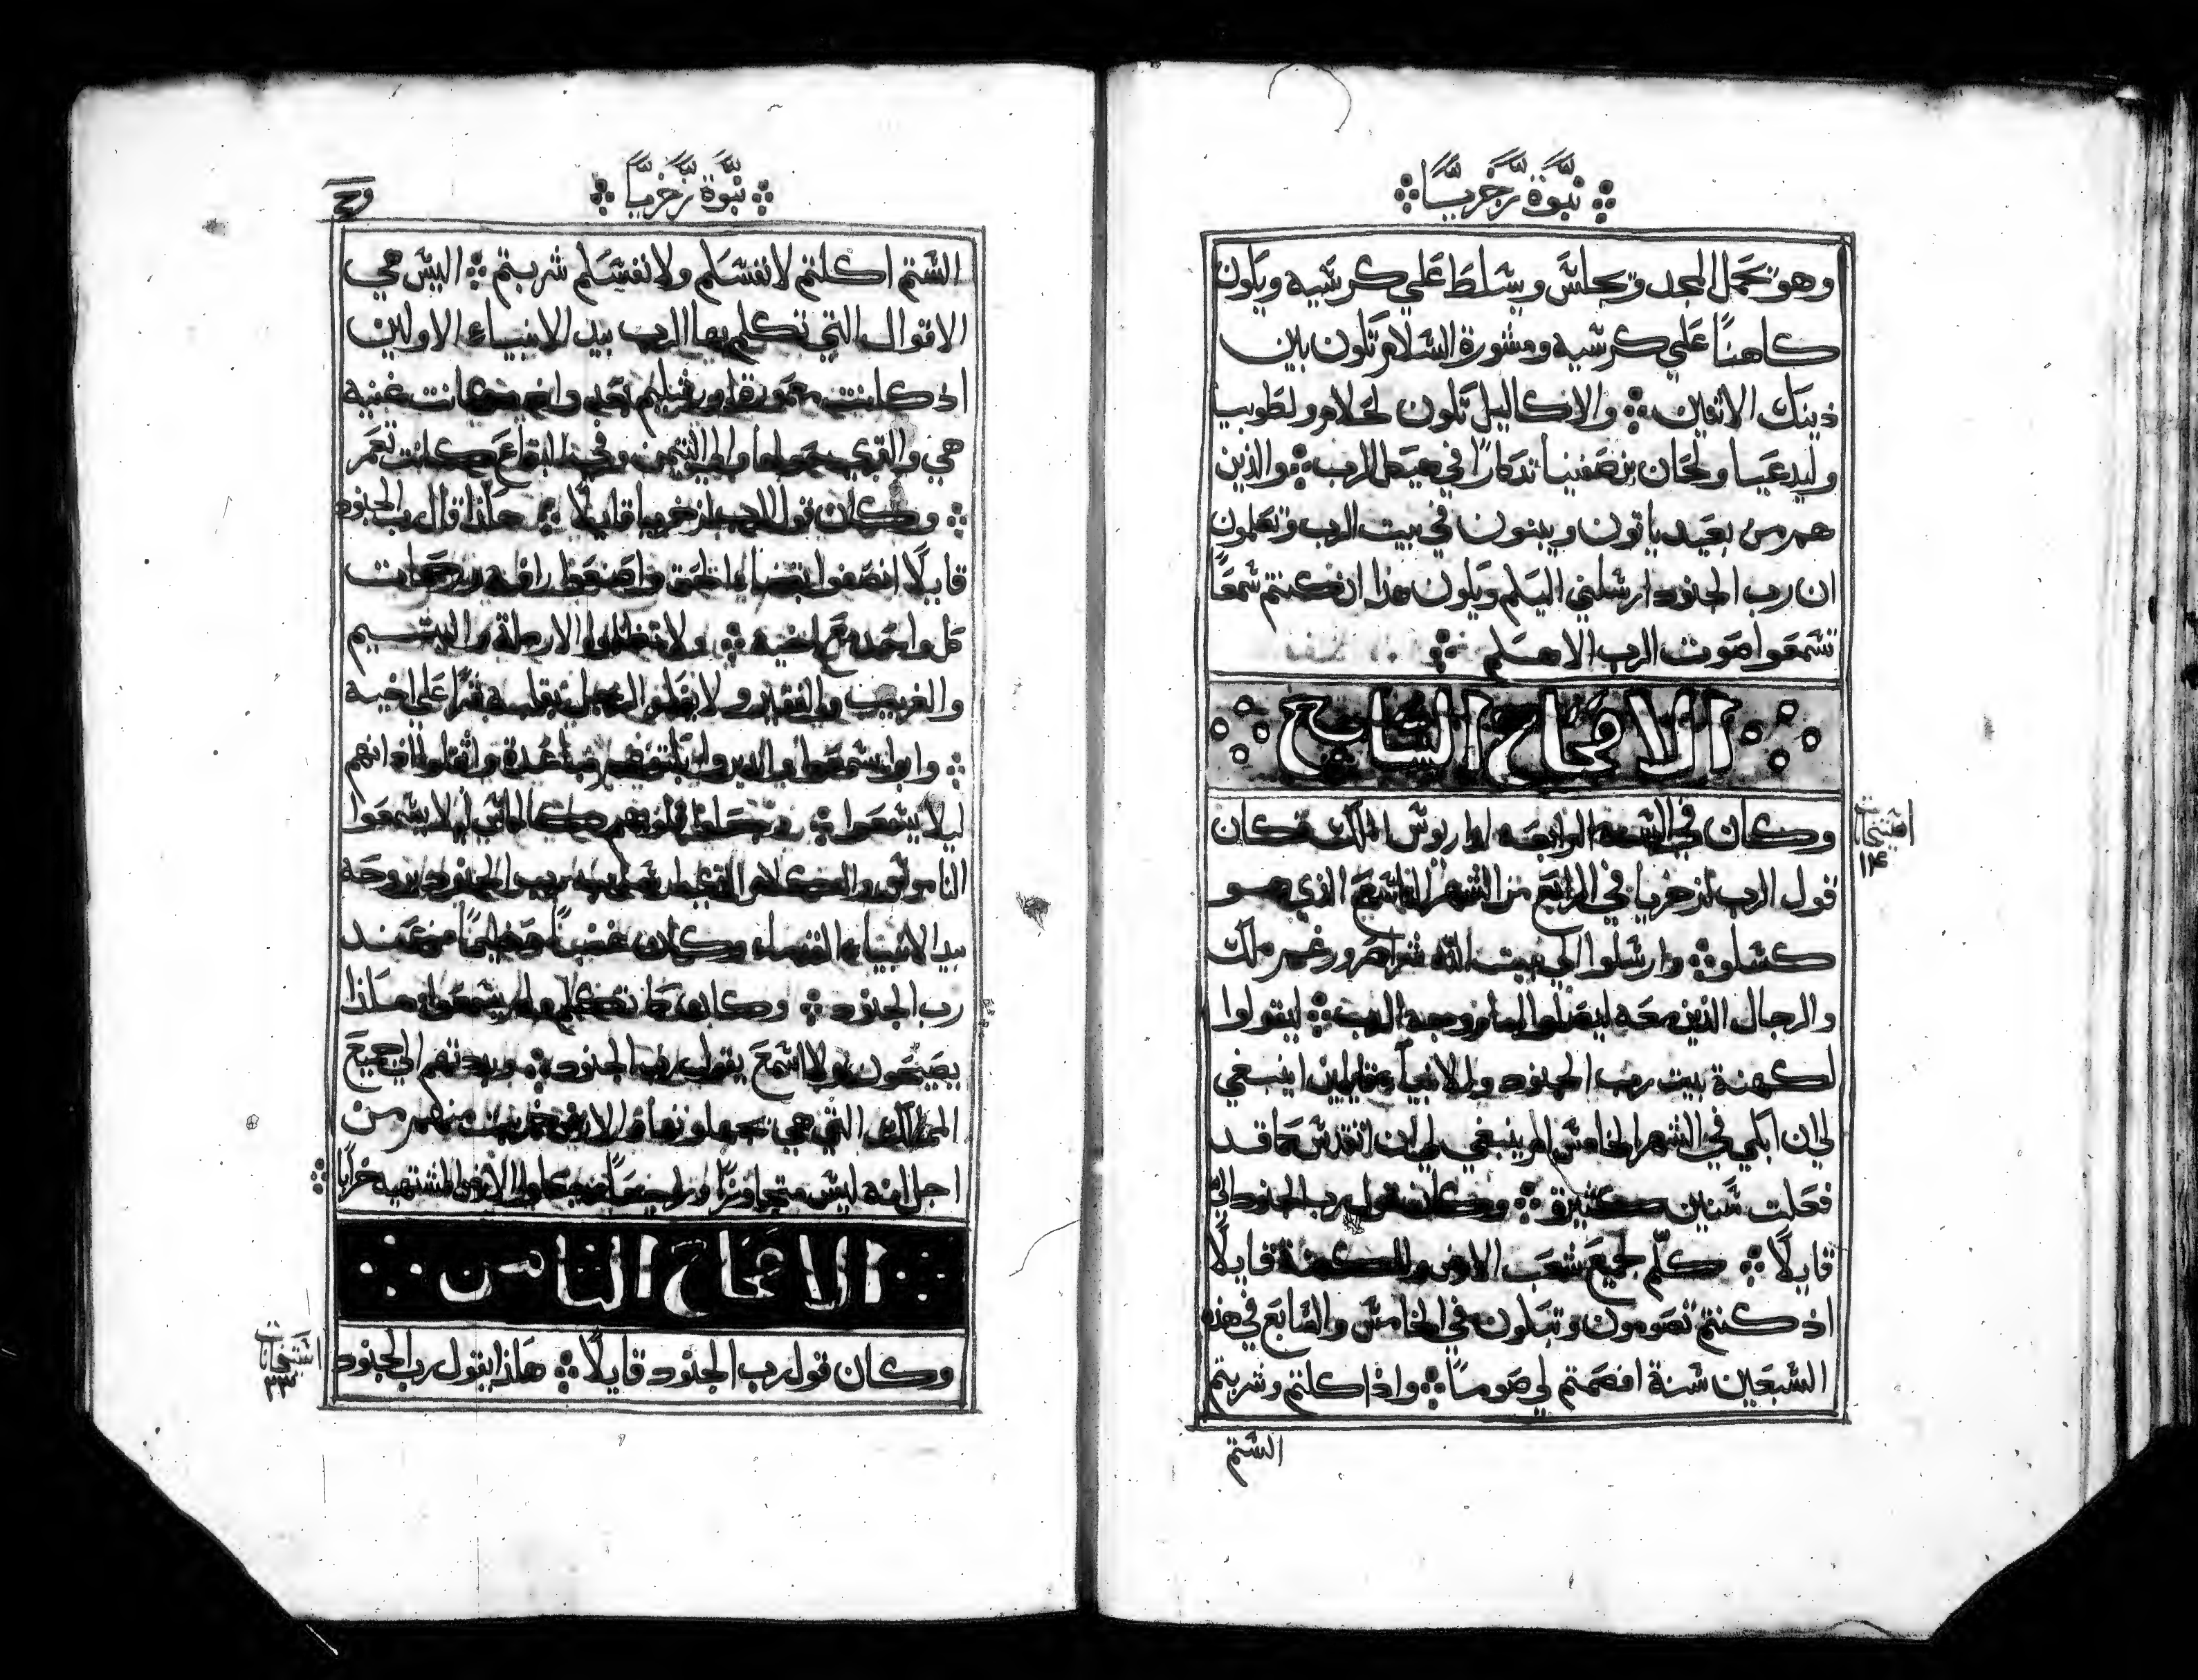 نبوة زخريا
وهو تحمل المجد وتجلس وتسلط علي كرسيه ويكون
كاهنًا علي كرسيه ومشورة السلام تكون بين
ذينك الاثنين والاكاليل تكون لحلام ولطوبيا
وليدعيا ولحان بن صفنيا تدكارًا في هيكل الرب والذين
هم من بعيد ياتون ويبنون في بيت الرب وتعلمون
ان رب الجنود ارسلني اليكم ويكون هذا ان كنتم سمعًا
تسمعوا صوت الرب الاهكم
الاصحاح السابع
اصتحات
١٤
وكان في السنة الرابعة لداريوس الملك فكان
قول الرب لزخريا في الرابع من الشهر التاسع الذي هو
كسلو وارسلوا الي بيت الله شراصر ورغمر ملك
والرجال الذين معه ليصلوا امام وجه الرب ليقولوا
لكهنة بيت رب الجنود وللانبيا قايلين اينبغي
لي ان ابكي في الشهر الخامس ام ينبغي لي ان اتقدس كما قد
فعلت سنين كثيرة وكان قول رب الجنود الي
قايلًا كلّم جميع شعب الارض والكهنة قايلًا
اذ كنتم تصومون وتبكون في الخامس والسابع في هذه
السبعين سنة افصمتم لي صومًا واذ اكلتم وشربتم
الستم
نبوة زخريا
الستم اكلتم لانفسكم ولانفسكم شربتم اليس هي
الاقوال التي تكلم بها الرب بيد الانبياء الاولين
اذ كانت اورشليم بعد كانت غنية
هي والقري حولها والتيمن وفي البقاع كانت تعمر
وكان قول الرب لزخريا قايلًا هكذا قال رب الجنود
قايلًا انصفوا بقضاء الحق واصنعوا رافة ورحمات
كل واحد مع اخيه ولا تظلموا الارملة واليتيم
والغريب والفقير ولا يفكر الرجل بقلبه شرًا علي اخيه
وابوا ان يسمعوا واثقلوا اذانهم
ليلا يسمعوا وجعلوا قلوبهم كالماس ليلا يسمعوا
الناموس والكلام التي ارسل رب الجنود بروحه
بيد الانبياء القدماء وكان غضبًا عظيمًا من عند
رب الجنود وكان كما تكلم ولم يسمعوا هكذا
يصيحون ولا اسمع يقول رب الجنود وبددتهم الي جميع
الممالك التي هي والارض خربت منهم من
اجل انه ليس متجاوزًا وراجعًا وجعلوا الارض المشتهية خرابًا
الاصحاح الثامن
اصتحات
٣٣
وكان قول رب الجنود قايلًا هكذا يقول رب الجنود